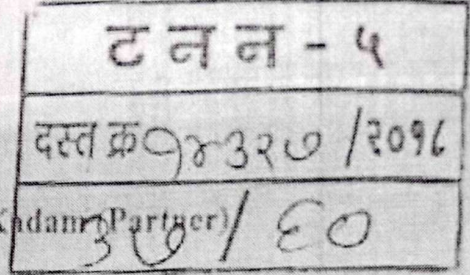 ट न न - ५
दस्त क्र १४३२७ /२०१८
Kadam (Partner)
३७ / ६०